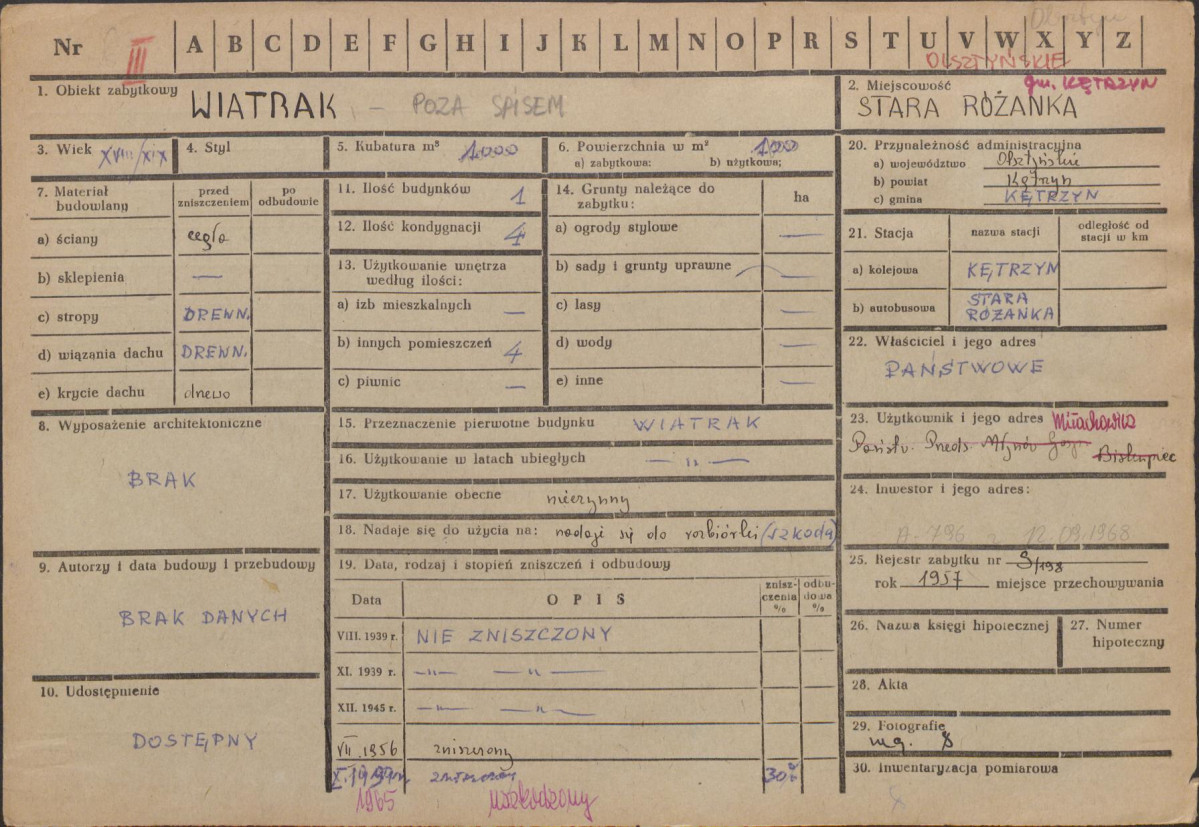 Nr III A B C D E F G H I J K L M N O P R S T U V W X Y Z
OLSZTYŃSKIE
1. Obiekt zabytkowy
WIATRAK – POZA SPISEM
2. Miejscowość gm. KĘTRZYN
STARA RÓŻANKA
3. Wiek XVIII/XIX
4. Styl
5. Kubatura m³ 1000
6. Powierzchnia w m² 100
a) zabytkowa: b) użytkowa:
7. Materiał budowlany
przed zniszczeniem
po odbudowie
a) ściany cegła
b) sklepienia —
c) stropy DREWN.
d) wiązania dachu DREWN.
e) krycie dachu drewo
8. Wyposażenie architektoniczne
BRAK
9. Autorzy i data budowy i przebudowy
BRAK DANYCH
10. Udostępnienie
DOSTĘPNY
11. Ilość budynków 1
12. Ilość kondygnacji 4
13. Użytkowanie wnętrza
według ilości:
a) izb mieszkalnych —
b) innych pomieszczeń 4
c) piwnic —
14. Grunty należące do
zabytku: ha
a) ogrody stylowe —
b) sady i grunty uprawne —
c) lasy —
d) wody —
e) inne —
15. Przeznaczenie pierwotne budynku WIATRAK
16. Użytkowanie w latach ubiegłych — " —
17. Użytkowanie obecne nieczynny
18. Nadaje się do użycia na: nadaje się do rozbiórki (szkoda)
19. Data, rodzaj i stopień zniszczeń i odbudowy
Data
OPIS
znisz-czenia %
odbu-dowa %
VIII. 1939 r. NIE ZNISZCZONY
XI. 1939 r. — " — — " —
XII. 1945 r. — " — — " —
VII. 1956 zniszczony
30%
1965 uszkodzony
20. Przynależność administracyjna
a) województwo Olsztyńskie
b) powiat Kętrzyn
c) gmina KĘTRZYN
21. Stacja
nazwa stacji
odległość od stacji w km
a) kolejowa KĘTRZYN
b) autobusowa STARA RÓŻANKA
22. Właściciel i jego adres
PAŃSTWOWE
23. Użytkownik i jego adres
Państw. Przeds. Młynów Gosp.
Biskupiec
24. Inwestor i jego adres:
A-796 z 12.09.1968
25. Rejestr zabytku nr S/198
rok 1957 miejsce przechowywania
26. Nazwa księgi hipotecznej
27. Numer hipoteczny
28. Akta
29. Fotografie
neg. 8
30. Inwentaryzacja pomiarowa